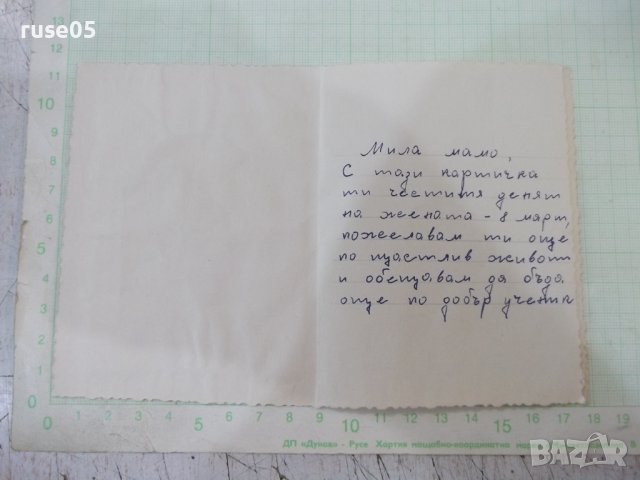 ruse05
Мила мамо,
С тази картичка
ти честитя денят
на жената - 8 март,
пожелавам ти още
по щастлив живот
и обещавам да бъда
още по добър ученик
13
12
11
10
9
8
7
6
5
4
3
2
1
0
0 1 2 3 4 5 6 7 8 9 10 11 12 13 14 15 16 17 18 19
ДП «Дунав» - Русе Хартия мащабно-координатна
BAZAR